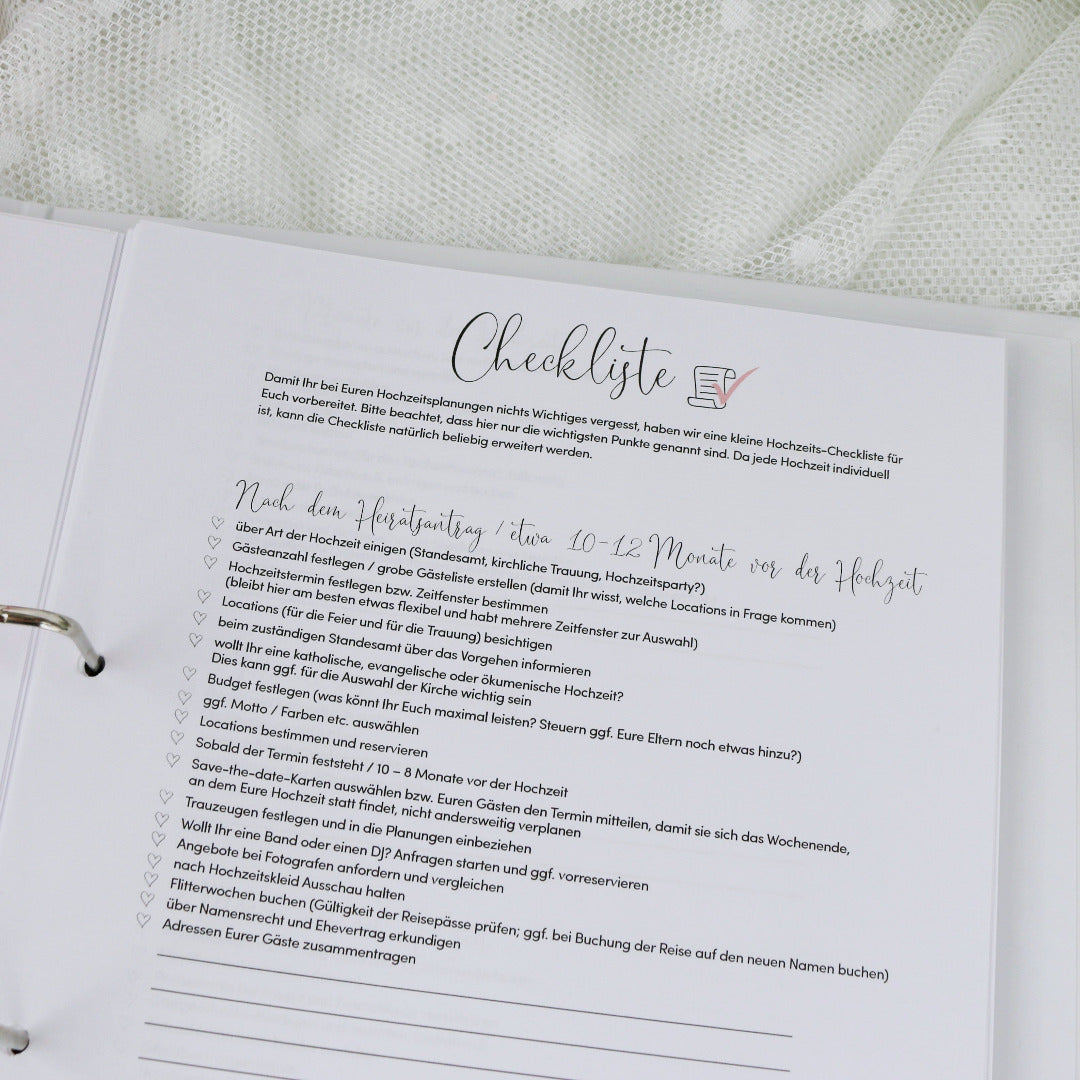 Checkliste
Damit Ihr bei Euren Hochzeitsplanungen nichts Wichtiges vergesst, haben wir eine kleine Hochzeits-Checkliste für
Euch vorbereitet. Bitte beachtet, dass hier nur die wichtigsten Punkte genannt sind. Da jede Hochzeit individuell
ist, kann die Checkliste natürlich beliebig erweitert werden.
Nach dem Heiratsantrag / etwa 10-12 Monate vor der Hochzeit
über Art der Hochzeit einigen (Standesamt, kirchliche Trauung, Hochzeitsparty?)
Gästeanzahl festlegen / grobe Gästeliste erstellen (damit Ihr wisst, welche Locations in Frage kommen)
Hochzeitstermin festlegen bzw. Zeitfenster bestimmen
(bleibt hier am besten etwas flexibel und habt mehrere Zeitfenster zur Auswahl)
Locations (für die Feier und für die Trauung) besichtigen
beim zuständigen Standesamt über das Vorgehen informieren
wollt Ihr eine katholische, evangelische oder ökumenische Hochzeit?
Dies kann ggf. für die Auswahl der Kirche wichtig sein
Budget festlegen (was könnt Ihr Euch maximal leisten? Steuern ggf. Eure Eltern noch etwas hinzu?)
ggf. Motto / Farben etc. auswählen
Locations bestimmen und reservieren
Sobald der Termin feststeht / 10 – 8 Monate vor der Hochzeit
Save-the-date-Karten auswählen bzw. Euren Gästen den Termin mitteilen, damit sie sich das Wochenende,
an dem Eure Hochzeit statt findet, nicht andersweitig verplanen
Trauzeugen festlegen und in die Planungen einbeziehen
Wollt Ihr eine Band oder einen DJ? Anfragen starten und ggf. vorreservieren
Angebote bei Fotografen anfordern und vergleichen
nach Hochzeitskleid Ausschau halten
Flitterwochen buchen (Gültigkeit der Reisepässe prüfen; ggf. bei Buchung der Reise auf den neuen Namen buchen)
über Namensrecht und Ehevertrag erkundigen
Adressen Eurer Gäste zusammentragen